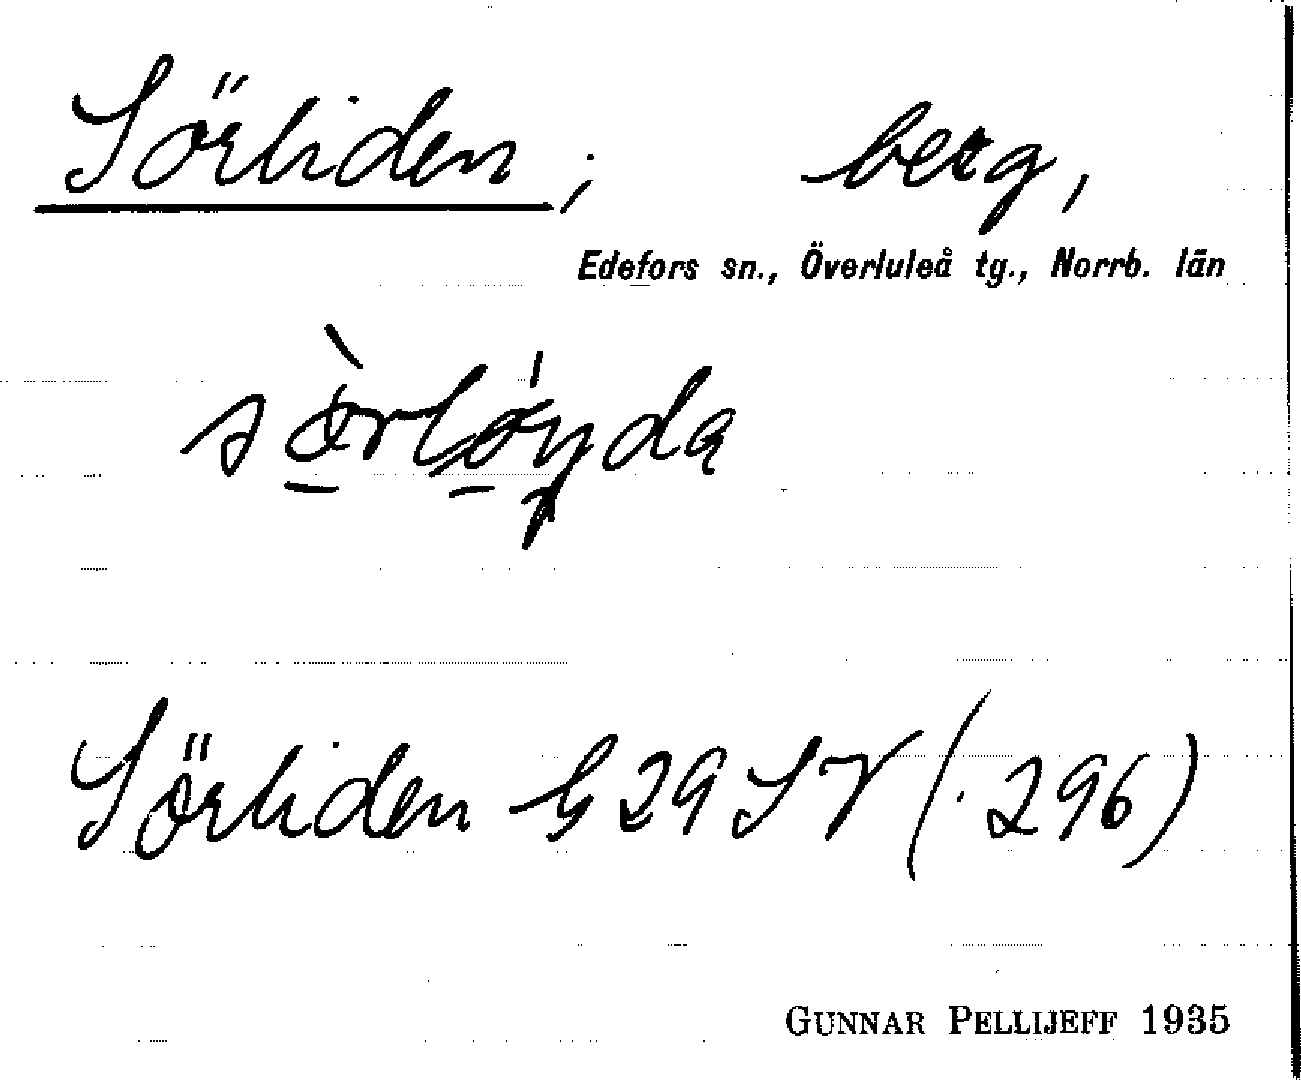 Sörliden; berg,
Edefors sn., Överluleå tg., Norrb. län
Sörliden h 29 SV (. 296)
GUNNAR PELLIJEFF 1935